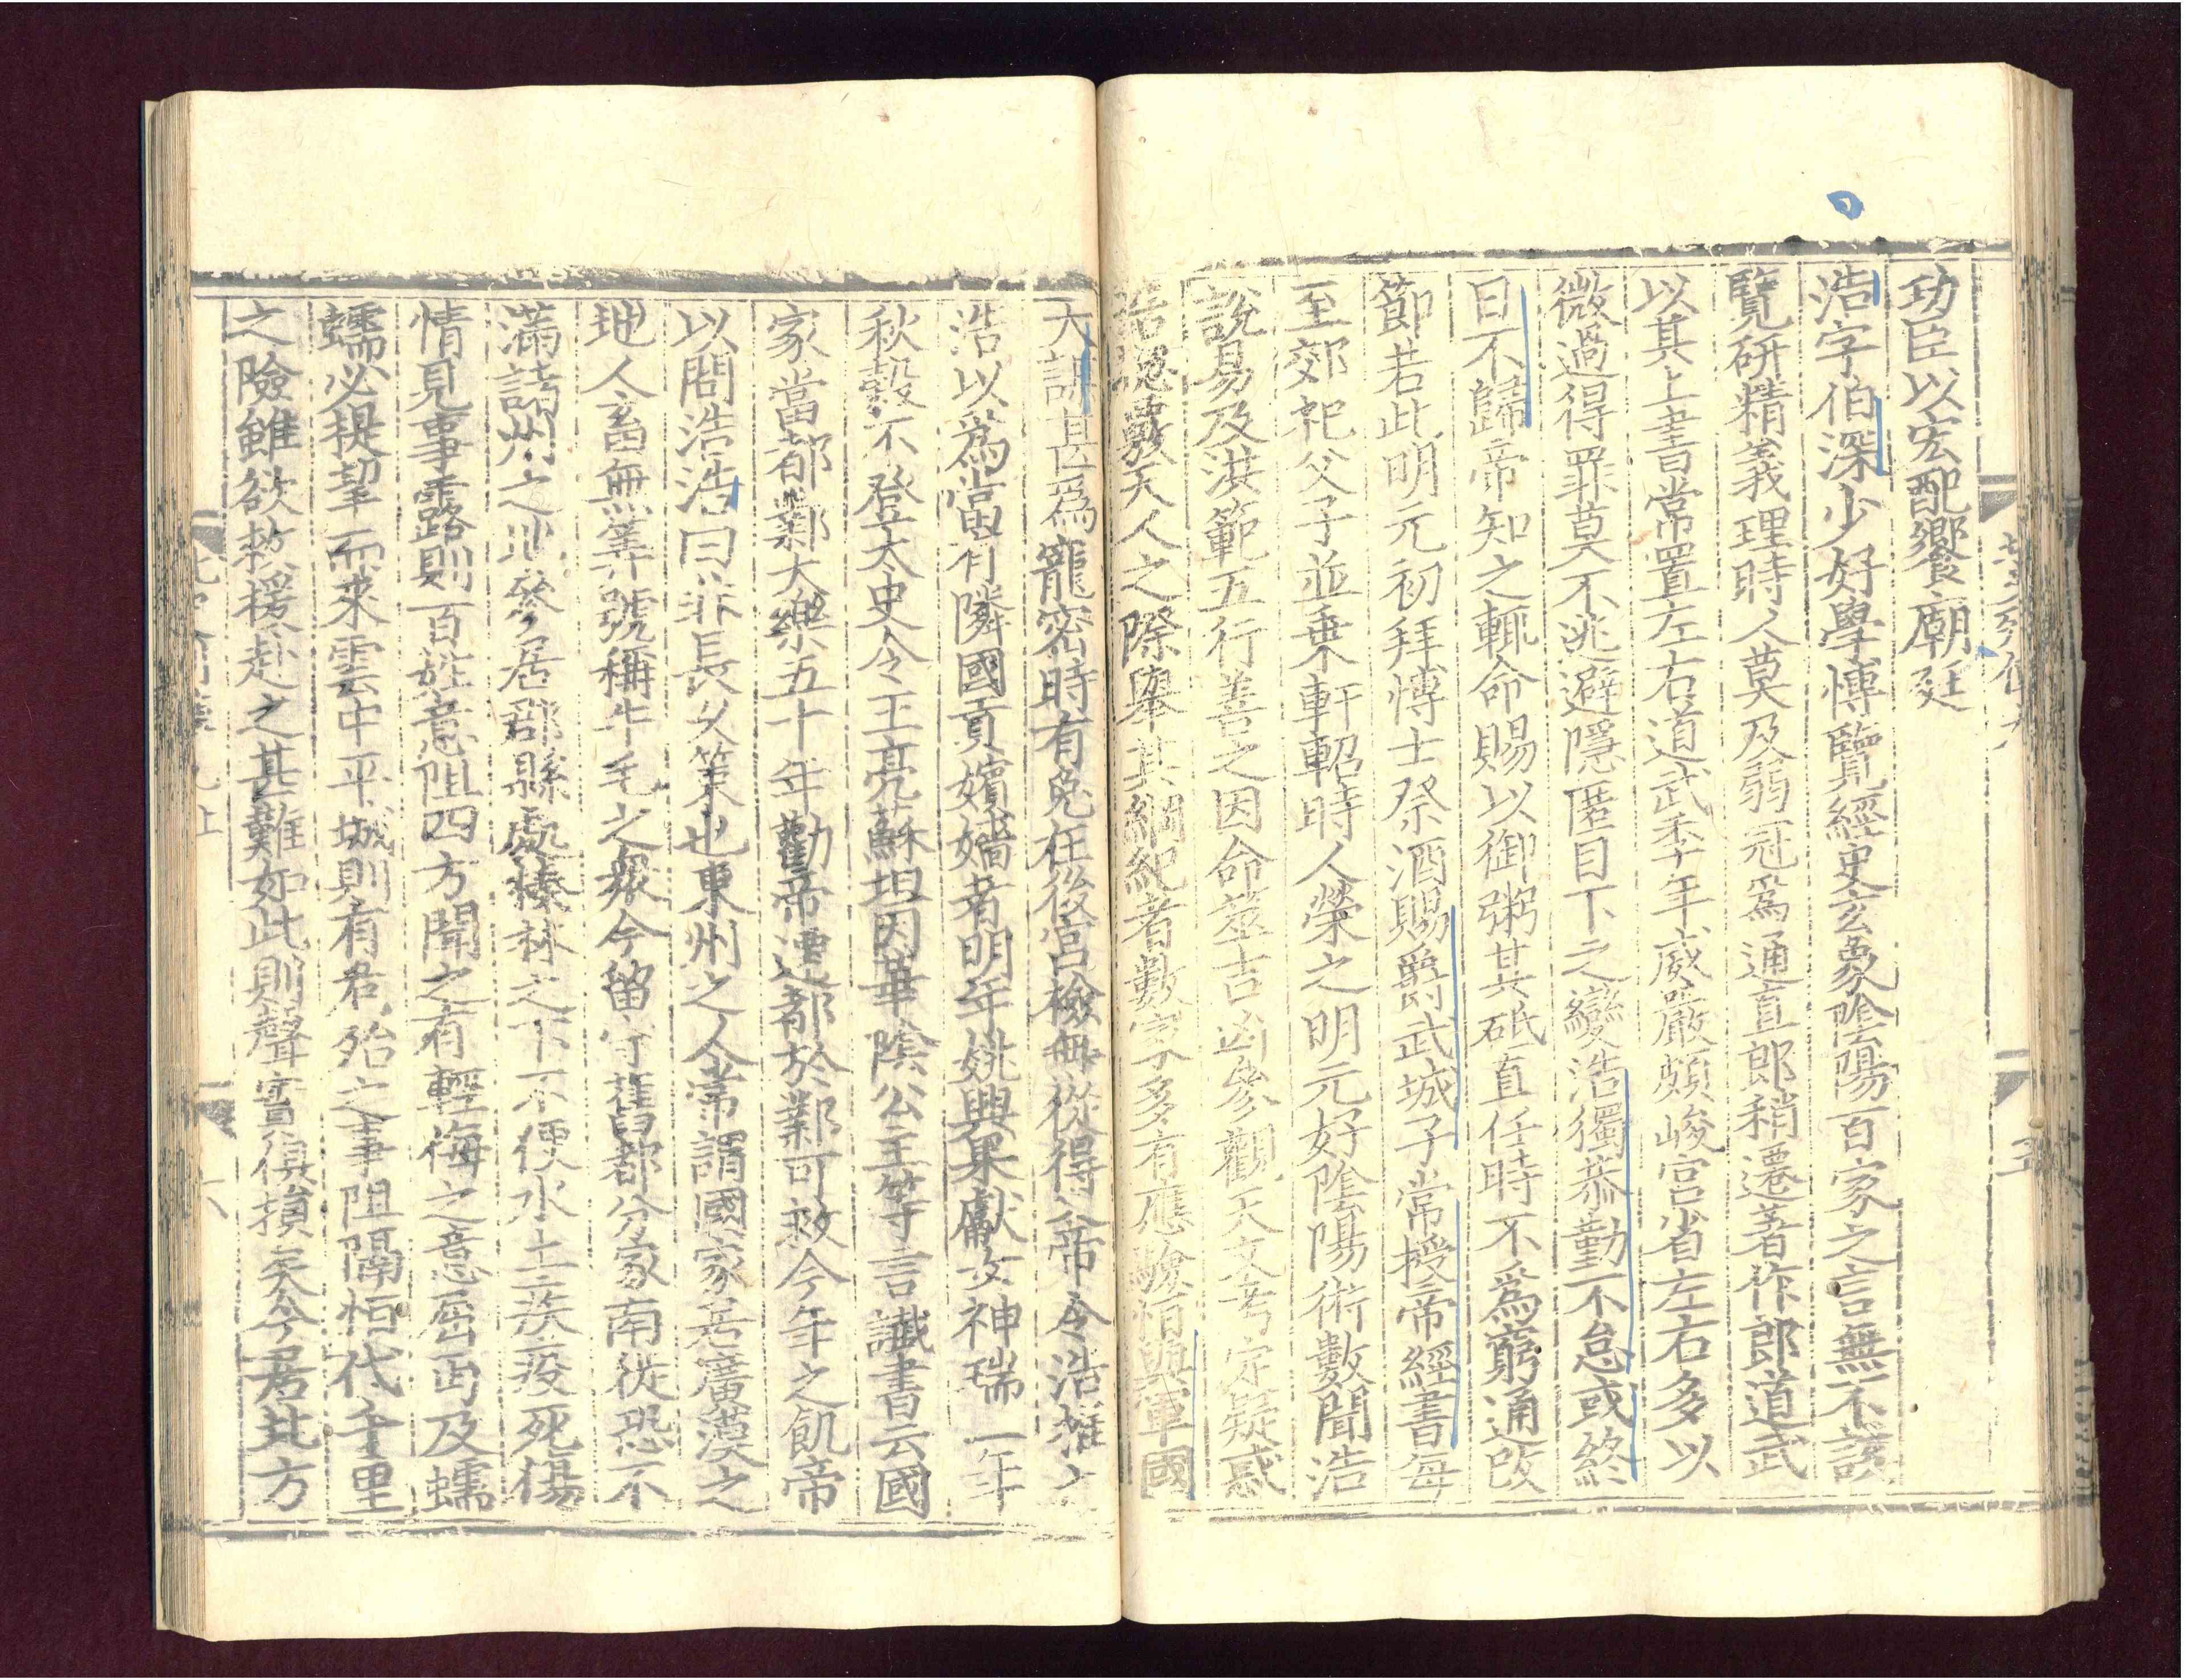 功臣以宏配饗廟廷
浩字伯深少好學博覽經史玄象陰陽百家之言無不該
覽研精義理時人莫及弱冠爲通直郎稍遷著作郎道武
以其工書常置左右道武季年威嚴頗峻宮省左右多以
微過得罪莫不逃避隱匿目下之變浩獨恭勤不怠或終
日不歸帝知之輒命賜以御粥其砥直任時不爲窮通改
節若此明元初拜博士祭酒賜爵武城子常授帝經書每
至郊祀父子並乗軒軺時人榮之明元好陰陽術數聞浩
說易及洪範五行善之因命筮吉凶參觀天文考定疑惑
浩總覈天人之際舉其綱紀者數家多有應驗恒與軍國
大謀甚爲寵密時有兔在後宮檢無從得入帝令浩推之
浩以爲當有隣國貢嬪嬙者明年姚興果獻女神瑞二年
秋穀不登太史令王亮蘇坦因華陰公主等言讖書云國
家當都鄴大樂五十年勸帝遷都於鄴可救今年之飢帝
以問浩浩曰非長久策也東州之人常謂國家居廣漠之
地人畜無筭號稱牛毛之衆今留守舊都分家南徙恐不
滿諸州之地參居郡縣處榛林之下不便水土疾疫死傷
情見事露則百姓意阻四方聞之有輕侮之意屈丐及蠕
蠕必提挈而來雲中平城則有危殆之事阻隔恒代千里
之險雖欲救援赴之甚難如此則聲實俱損矣今居北方